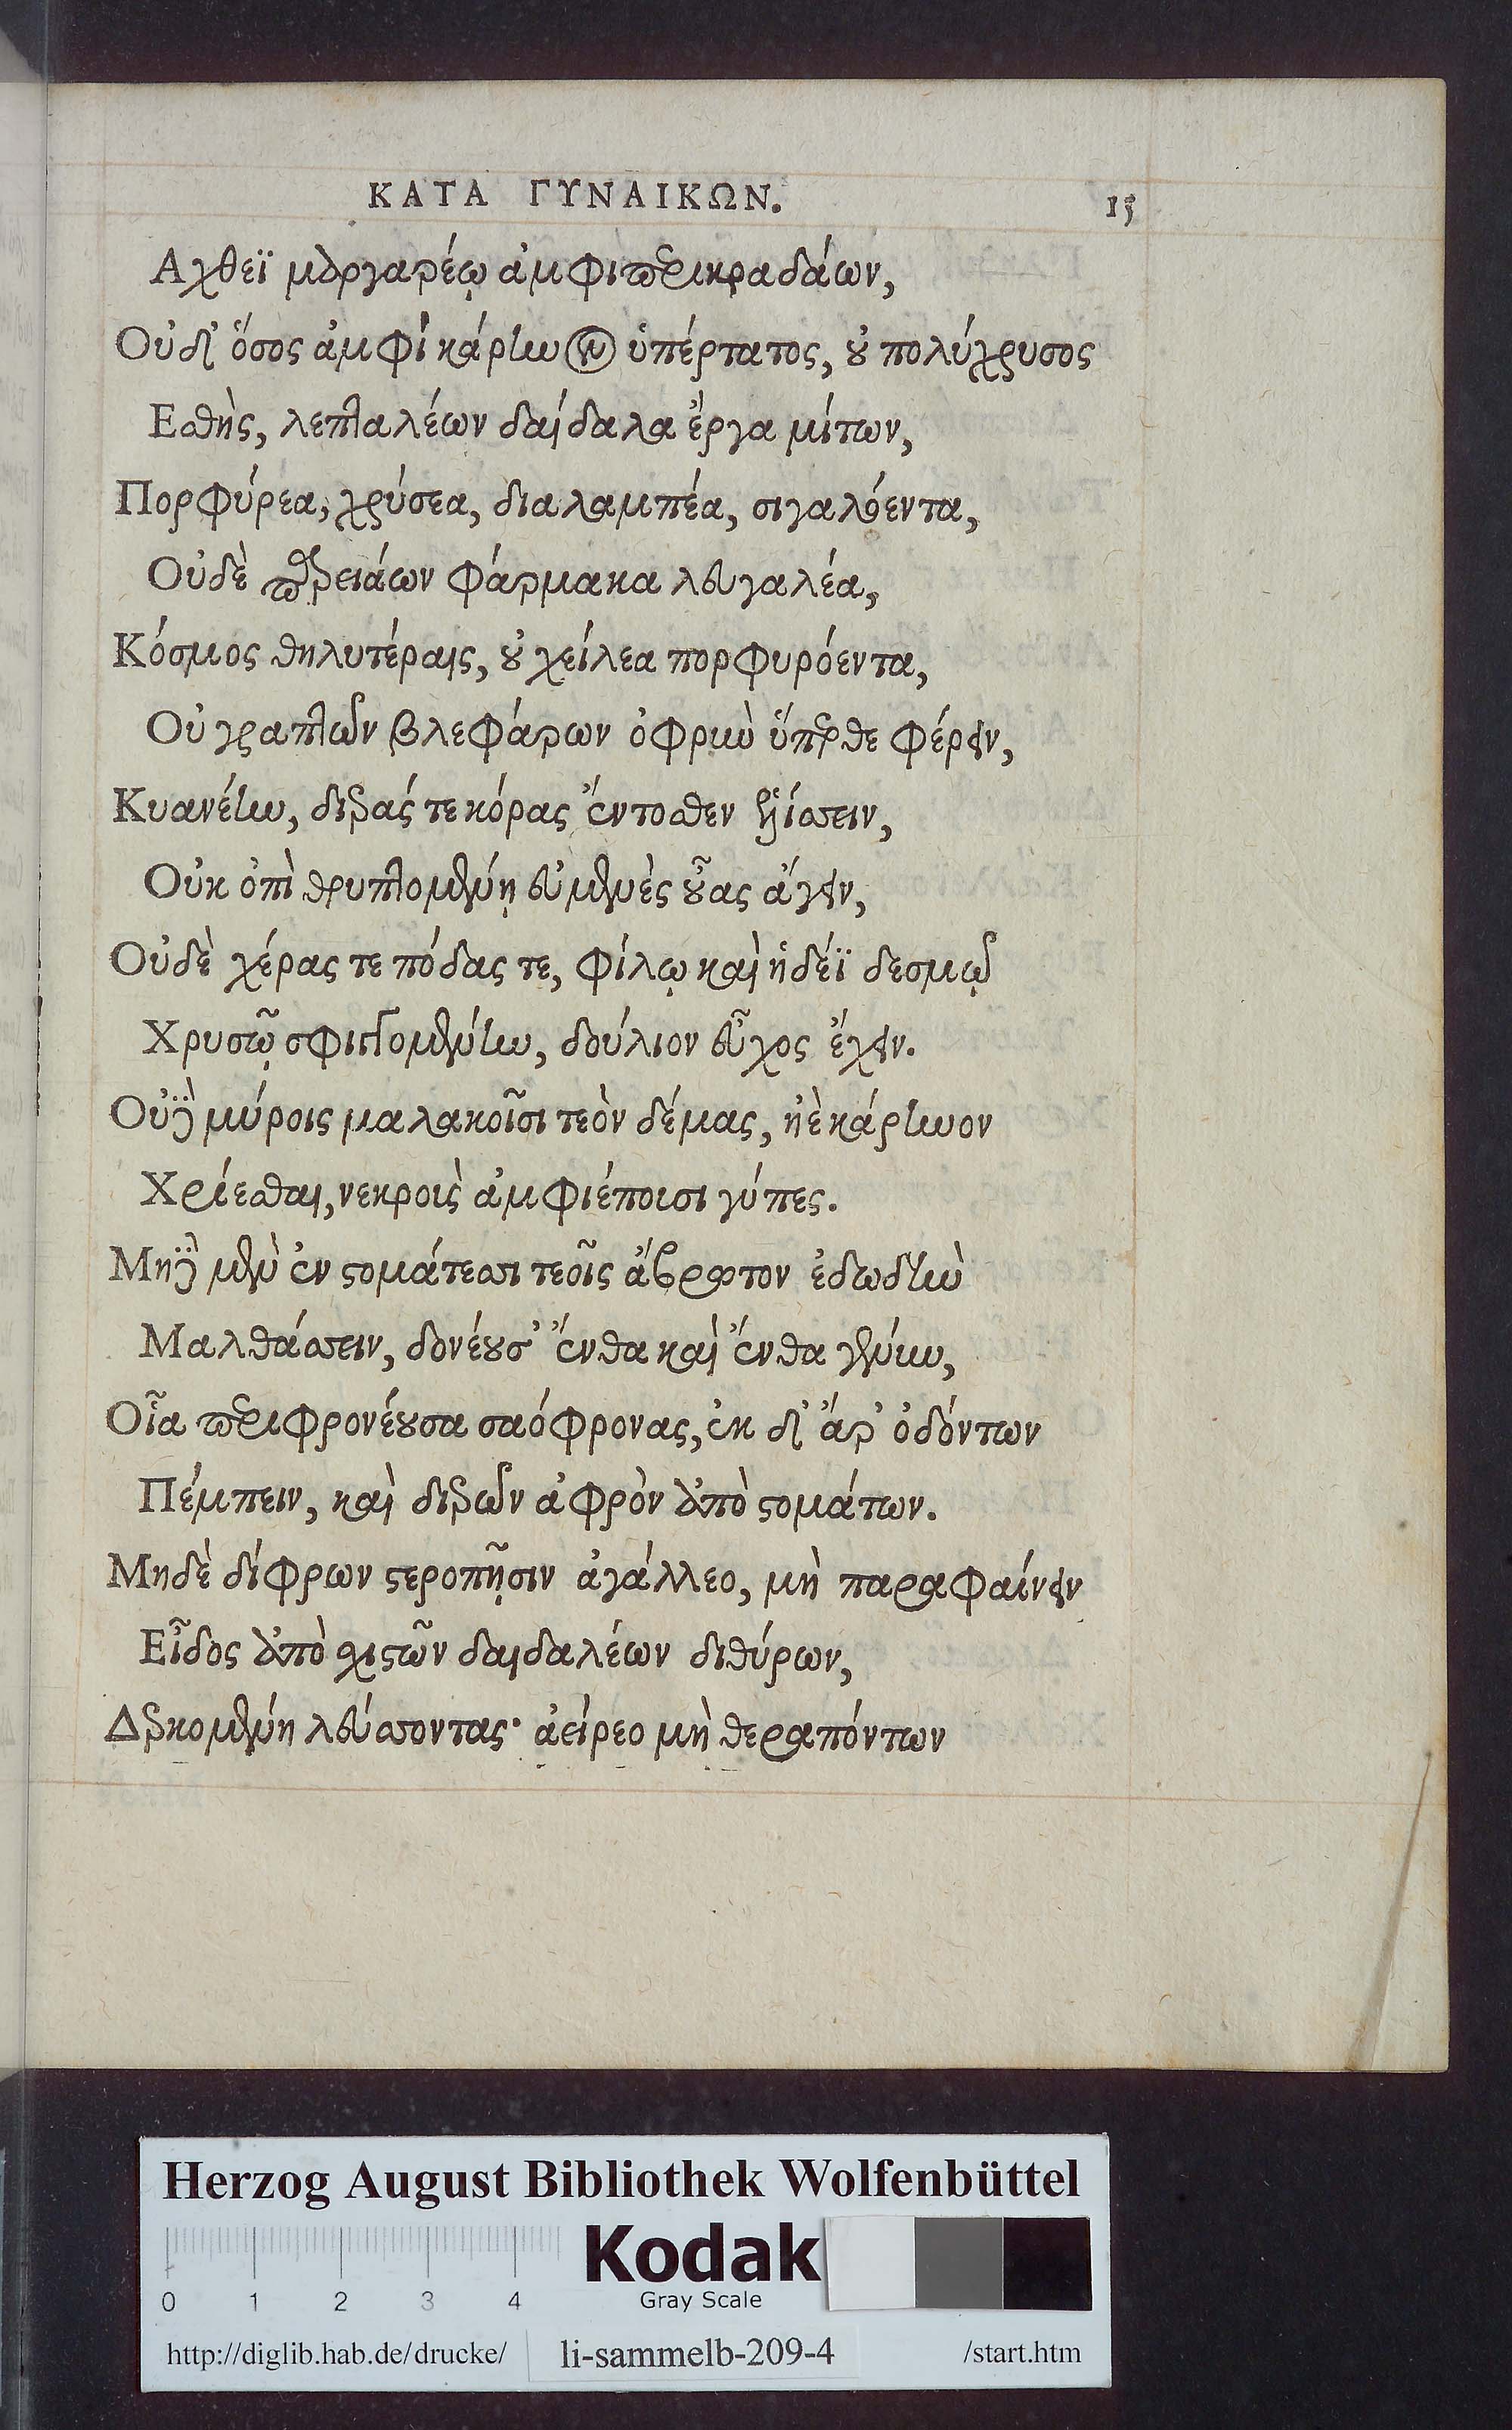 ΚΑΤΑ ΓΥΝΑΙΚΩΝ. 15
Αχθεϊ μαργαρέῳ ἀμφιπερικραδάων,
Οὐδ' ὅσος ἀμφὶ κάρηνον ὑπέρτατος, οὐ πολύχρυσος
Εσθὴς, λεπταλέων δαίδαλα ἔργα μίτων,
Πορφύρεα, χρύσεα, διαλαμπέα, σιγαλόεντα,
Οὐδὲ παρειάων φάρμακα λευγαλέα,
Κόσμος θηλυτέραις, οὐ χείλεα πορφυρόεντα,
Οὐ γραπτῶν βλεφάρων ὀφρυὺ ὕπερθε φέρειν,
Κυανέην, διεράς τε κόρας ἔντοσθεν ἑλίσσειν,
Οὐκ ἐπὶ θρυπτομένῃ εὐμενὲς οὖας ἄγειν,
Οὐδὲ χέρας τε πόδας τε, φίλῳ καὶ ἡδέϊ δεσμῷ
Χρυσῷ σφιγγομένην, δούλιον εὖχος ἔχειν.
Οὐδὲ μύροις μαλακοῖσι τεὸν δέμας, ἠὲ κάρηνον
Χρίεσθαι, νεκροὶς ἀμφιέποισι γύπες.
Μηδὲ μὲν ἐν στομάτεσσι τεοῖς ἄβρωτον ἐδωδὴν
Μαλθάσσειν, δονέουσ' ἔνθα καὶ ἔνθα γένυν,
Οἷα περιφρονέουσα σαόφρονας, ἐκ δ' ἄρ' ὀδόντων
Πέμπειν, καὶ διερῶν ἀφρὸν ἀπὸ στομάτων.
Μηδὲ δίφρων στεροπῇσιν ἀγάλλεο, μὴ παραφαίνειν
Εἶδος ἀπὸ σχιστῶν δαιδαλέων διθύρων,
Δερκομένη λεύσσοντας· ἀείρεο μὴ θεραπόντων
Herzog August Bibliothek Wolfenbüttel
Kodak
0 1 2 3 4
Gray Scale
http://diglib.hab.de/drucke/ li-sammelb-209-4 /start.htm